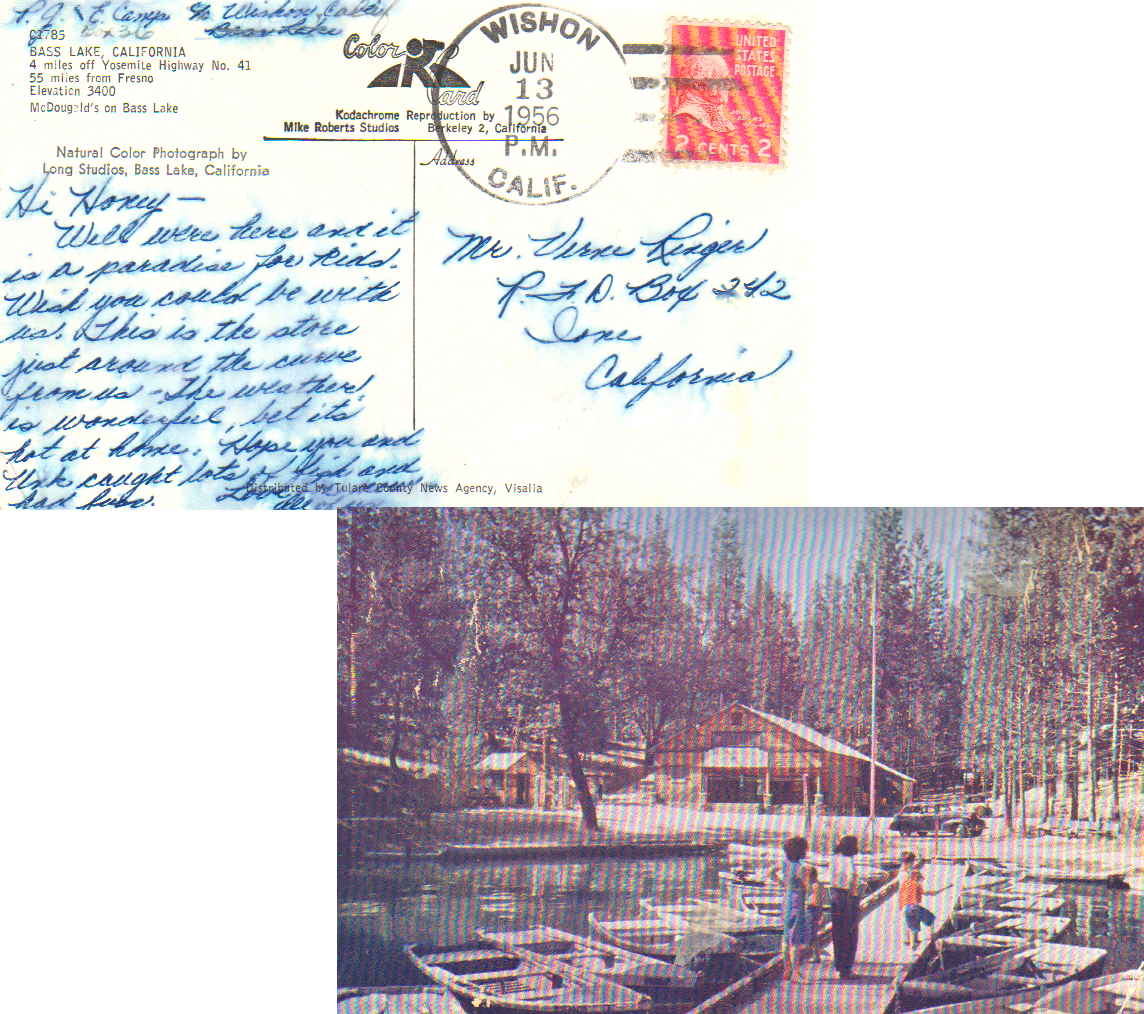 P.G. & E. Camp % Wishon, Calif
Box 36 Bass Lake
C1785
BASS LAKE, CALIFORNIA
4 miles off Yosemite Highway No. 41
55 miles from Fresno
Elevation 3400
McDougald's on Bass Lake
Color Card
Kodachrome Reproduction by
Mike Roberts Studios Berkeley 2, California
Natural Color Photograph by
Long Studios, Bass Lake, California
WISHON
JUN
13
1956
P.M.
CALIF.
UNITED
STATES
POSTAGE
2 CENTS 2
Address
Hi Honey —
Well were here and it
is a paradise for kids.
Wish you could be with
us. This is the store
just around the curve
from us - The weather
is wonderful, bet its
hot at home. Hope you and
Unk caught lots of fish and
had fun.
Mr. Verne Ringer
R. F. D. Box 242
Ione
California
Distributed by Tulare County News Agency, Visalia